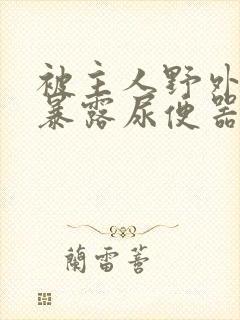 被主人野外
暴露尿便器
蘭雷蓍